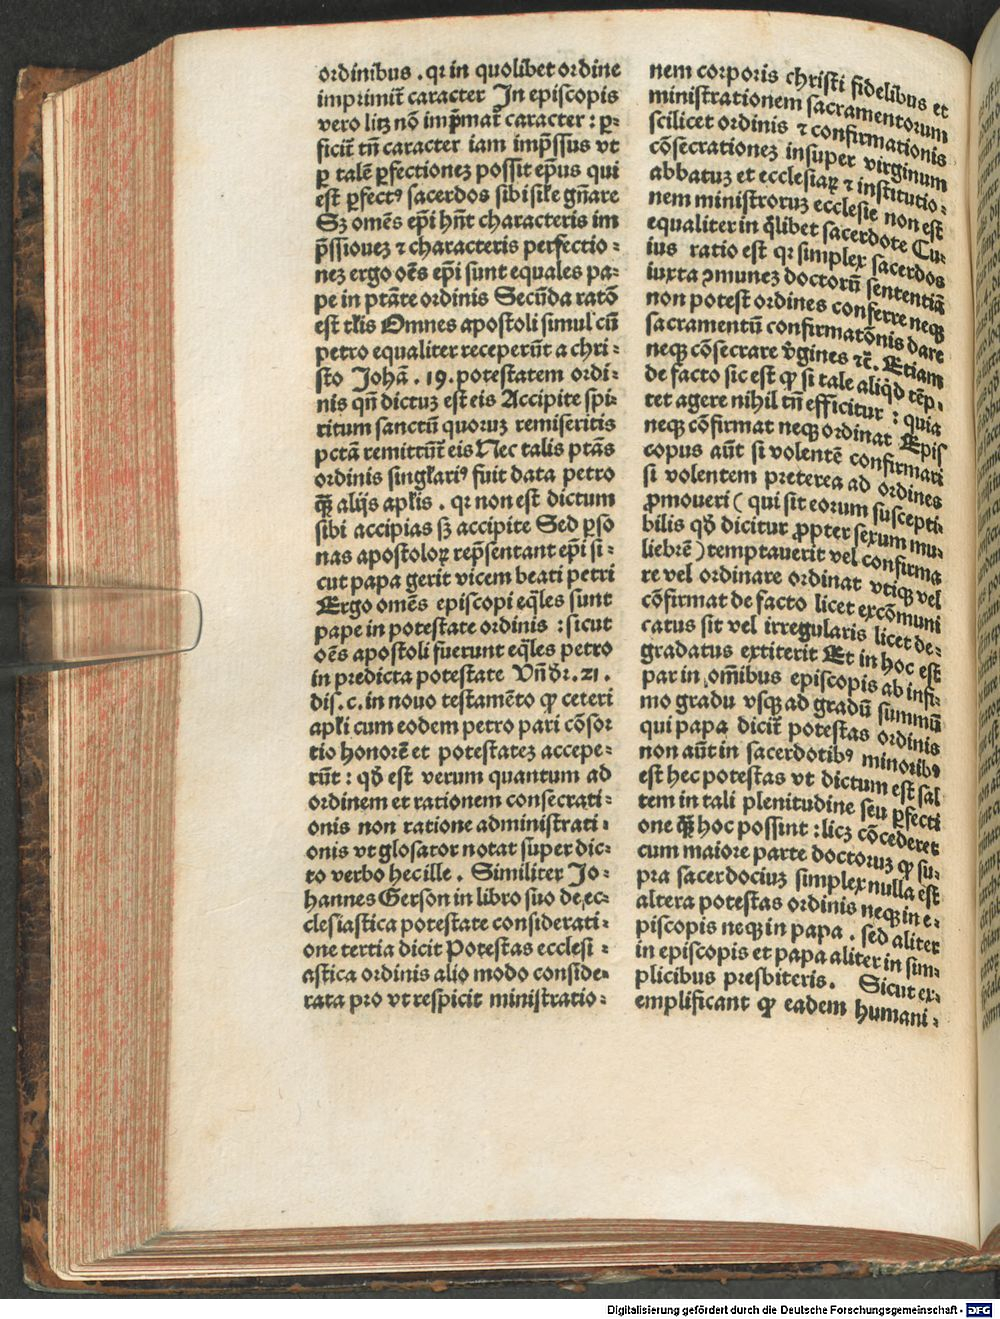 ordinibus . qꝛ in quolibet ordine
imprimit᷑ caracter In episcopis
vero litꝫ nō imp̄mat᷑ caracter : ꝑ-
ficit᷑ tn̄ caracter iam imp̄ssus vt
ꝑ talē ꝑfectionez possit ep̄us qui
est ꝑfectꝰ sacerdos sibi siłe gn̄are
Sꝫ omēs ep̄i hn̄t characteris im
p̄ssiouez ⁊ characteris perfectio-
nez ergo oēs ep̄i sunt equales pa-
pe in ptāte ordinis Secūda ratō
est tłis Omnes apostoli simul cū
petro equaliter receperūt a chri-
sto Johā . 19. potestatem ordi-
nis qn̄ dictuz est eis Accipite spi-
ritum sanctū quoruz remiseritis
pctā remittūt᷑ eis Nec talis ptās
ordinis singłariꝰ fuit data petro
qꝫ̄ alijs apłis . qꝛ non est dictum
sibi accipias sꝫ accipite Sed ꝑso
nas apostoloꝝ rep̄sentant ep̄i si-
cut papa gerit vicem beati petri
Ergo omēs episcopi eq̄les sunt
pape in potestate ordinis : sicut
oēs apostoli fuerunt eq̄les petro
in predicta potestate Vn̄ dr̄. 21.
dis. c. in nouo testamēto ꝙ ceteri
apłi cum eodem petro pari cōsor
tio honorē et potestatez accepe-
rūt : qđ est verum quantum ad
ordinem et rationem consecrati-
onis non ratione administrati-
onis vt glosator notat super dic-
to verbo hec ille . Similiter Jo-
hannes Gerson in libro suo de ec-
clesiastica potestate considerati-
one tertia dicit Potestas ecclesi-
astica ordinis alio modo conside-
rata pro vt respicit ministratio-
nem corporis christi fidelibus et
ministrationem sacramentorum
scilicet ordinis ⁊ confirmationis
cōsecrationez insuper virginum
abbatuz et ecclesiaꝝ ⁊ institutio-
nem ministroruz ecclesie non est
equaliter in q̄libet sacerdote Cu-
ius ratio est qꝛ simplex sacerdos
iuxta ꝯmunez doctorū sententiā
non potest ordines conferre neqꝫ
sacramentū confirmatōnis dare
neqꝫ cōsecrare v̄gines ⁊c̄. Etiam
de facto sic est ꝙ si tale aliq̄d tēp-
tet agere nihil tn̄ efficitur : quia
neqꝫ cōfirmat neqꝫ ordinat Epis
copus aūt si volentē confirmari
si volentem preterea ad ordines
ꝓmoueri ( qui sit eorum suscepti-
bilis qđ dicitur ꝓpter sexum mu-
liebrē ) temptauerit vel confirma
re vel ordinare ordinat vtiqꝫ vel
cōfirmat de facto licet excōmuni
catus sit vel irregularis licet de-
gradatus extiterit Et in hoc est
par in om̄ibus episcopis ab infi-
mo gradu vsqꝫ ad gradū summū
qui papa dicit᷑ potestas ordinis
non aūt in sacerdotibꝰ minoribꝰ
est hec potestas vt dictum est sal
tem in tali plenitudine seu ꝑfecti
one qꝫ̄ hoc possint : licꝫ cōcederet
cum maiore parte doctoruz ꝙ su-
pra sacerdociuz simplex nulla est
altera potestas ordinis neqꝫ in e-
piscopis neqꝫ in papa . sed aliter
in episcopis et papa aliter in sim-
plicibus presbiteris . Sicut ex-
emplificant ꝙ eadem humani-
Digitalisierung gefördert durch die Deutsche Forschungsgemeinschaft - DFG